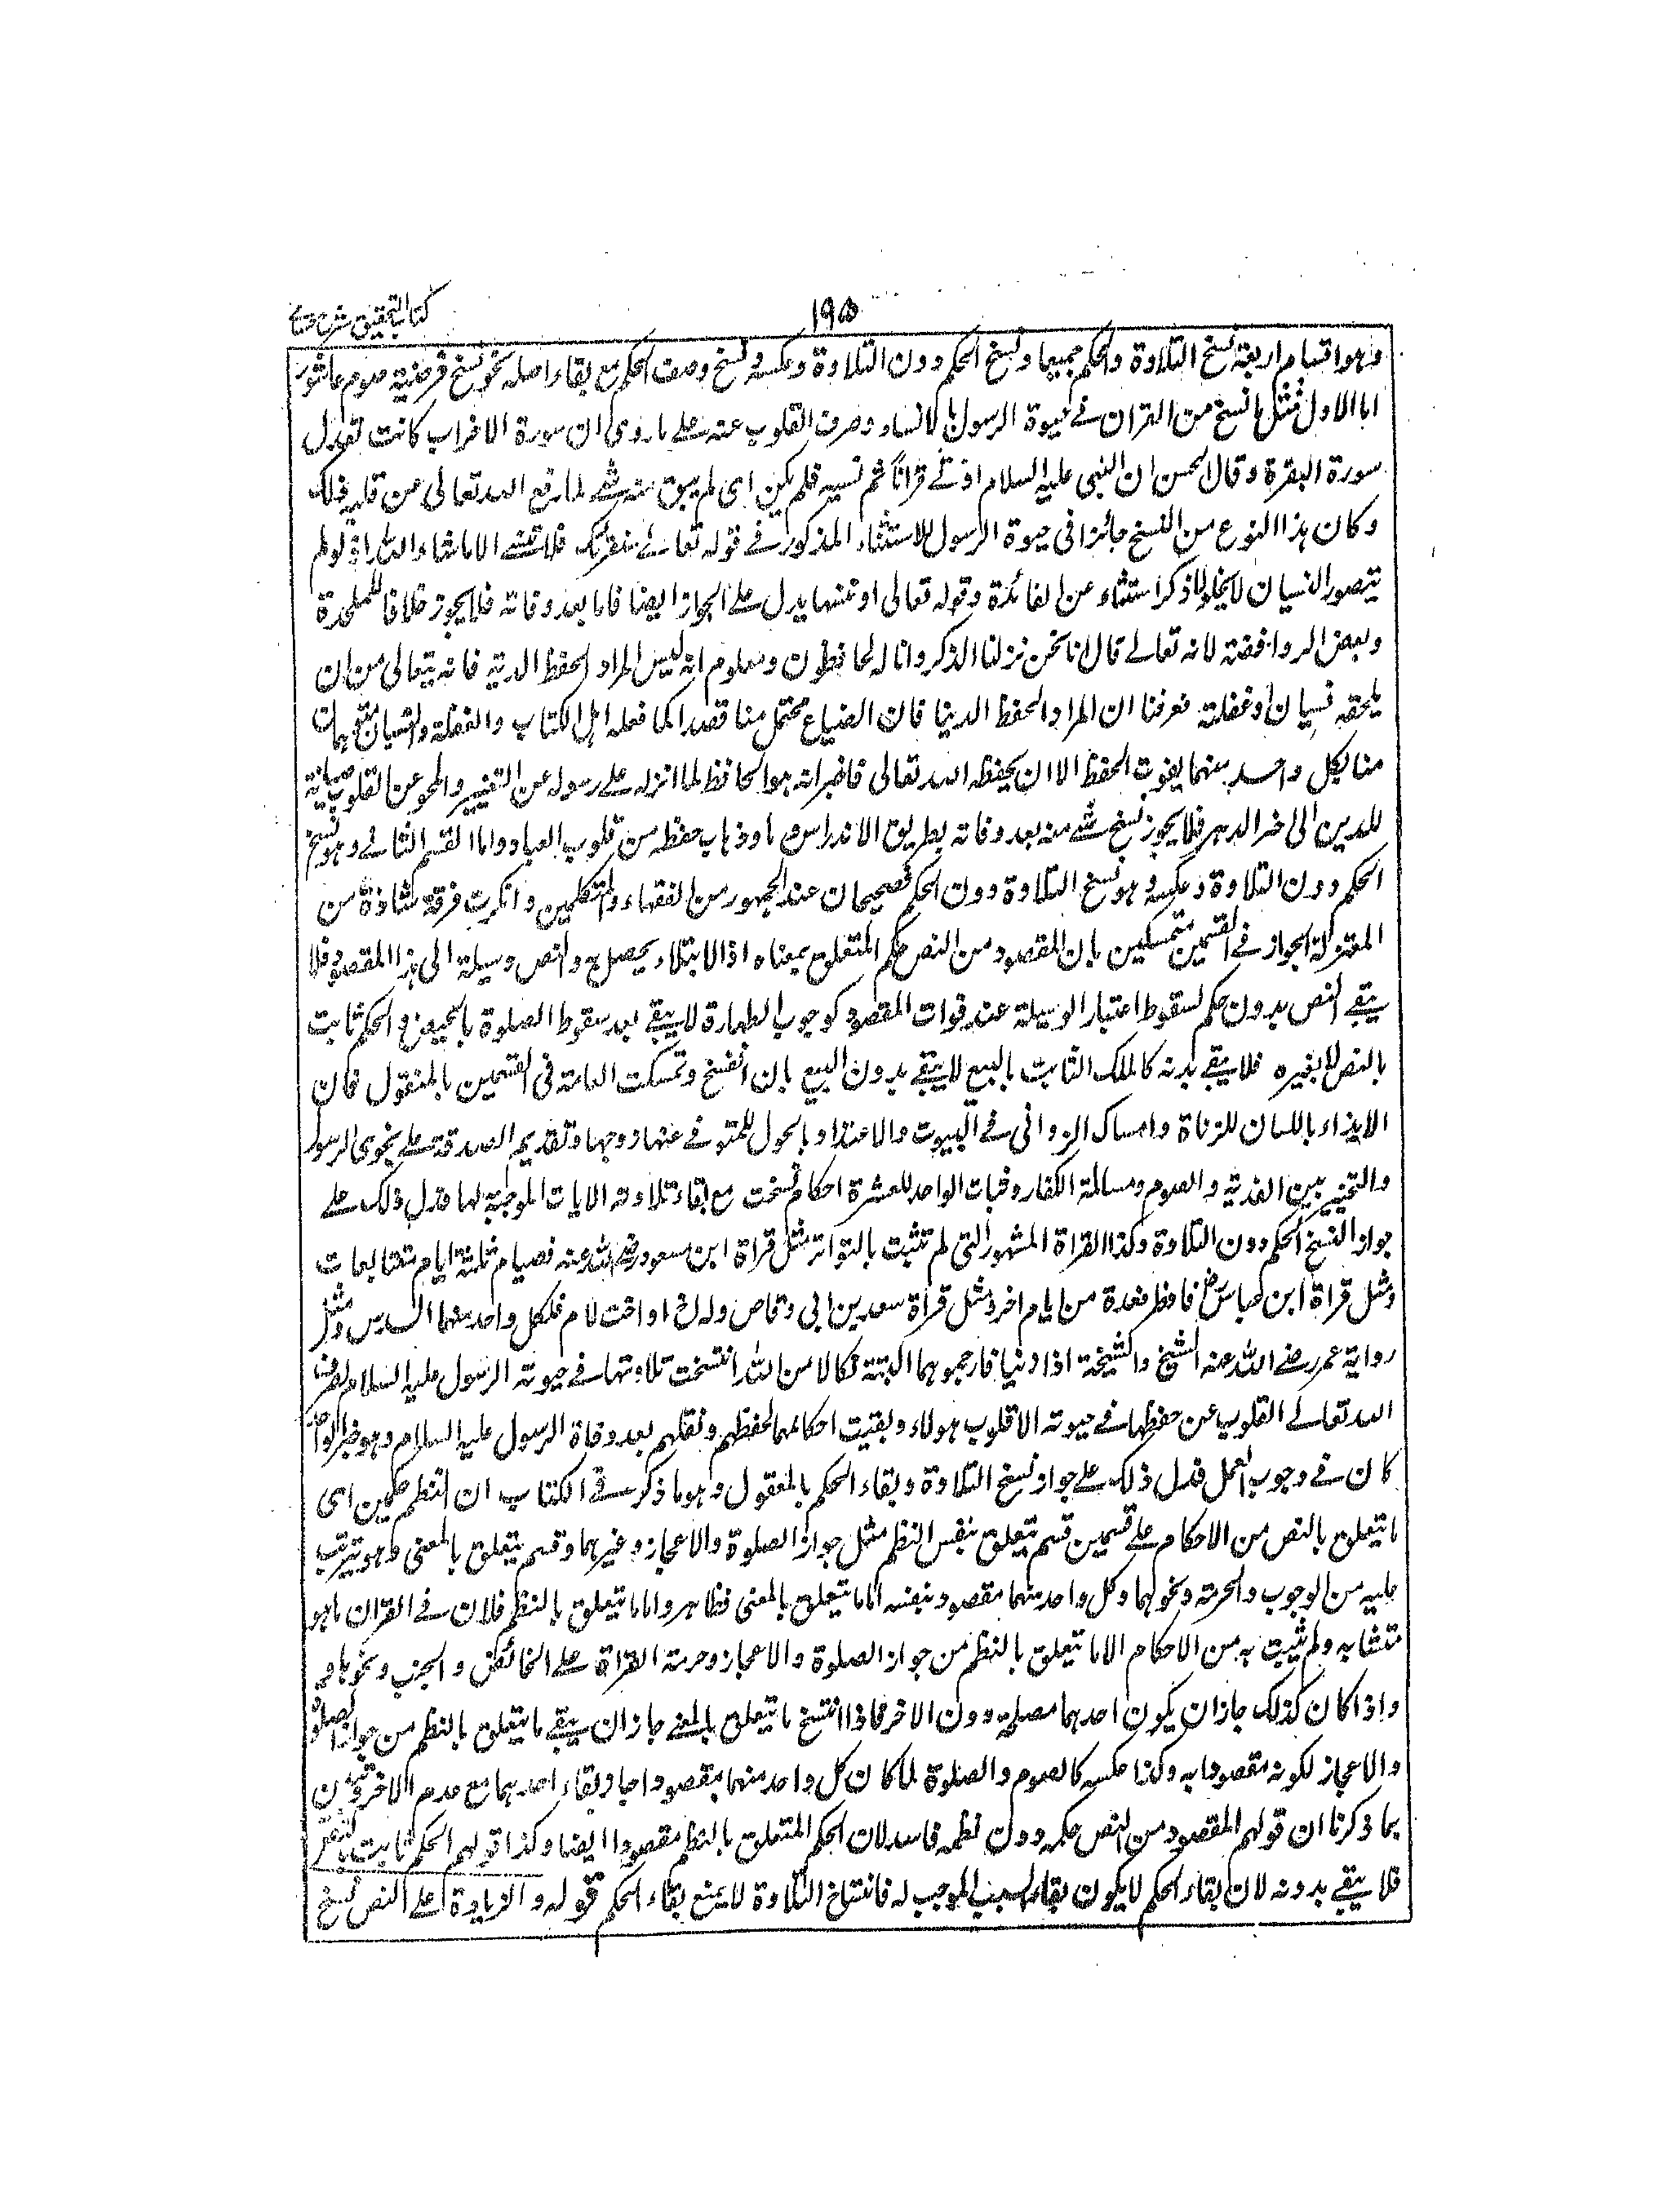 ١٩٥
كتاب التحقيق شرح حسامي
وهو اقسام اربعة نسخ التلاوة والحكم جميعا ونسخ الحكم دون التلاوة وعكسه ونسخ وصف الحكم مع بقاء اصله نحو نسخ فرضية صوم عاشورا
اما الاول فمثل ما نسخ من القران في حيوة الرسول بالانساء وصرف القلوب عنه على ما روى ان سورة الاحزاب كانت تعدل
سورة البقرة وقال الحسن ان النبي عليه السلام اوتي قرانا ثم نسيه فلم يكن اى لم يبق منه شئ لما رفع الله تعالى عن قلبه ذلك
وكان هذا النوع من النسخ جائزا في حيوة الرسول للاستثناء المذكور في قوله تعالى سنقرئك فلا تنسى الا ما شاء الله اذ لو لم
يتصور النسيان لا يخلو ذكر استثناء عن الفائدة وقوله تعالى او ننسها يدل على الجواز ايضا فاما بعد وفاته فلا يجوز خلافا للملحدة
وبعض الروافضة لانه تعالى قال انا نحن نزلنا الذكر وانا له لحافظون ومعلوم انه ليس المراد الحفظ لديه فانه يتعالى من ان
يلحقه نسيان او غفلة فعرفنا ان المراد الحفظ لدينا فان الضياع محتمل منا قصدا كما فعله اهل الكتاب والغفلة والنسيان متوهمان
منا بكل واحد منهما يفوت الحفظ الا ان يحفظه الله تعالى فاخبر انه هو الحافظ لما انزله على رسوله عن التغيير والمحو عن القلوب صيانة
للدين الى اخر الدهر فلا يجوز نسخ شئ منه بعد وفاته بطريق الاندراس وذهاب حفظه من قلوب العباد واما القسم الثاني وهو نسخ
الحكم دون التلاوة وعكسه وهو نسخ التلاوة دون الحكم فصحيحان عند الجمهور من الفقهاء والمتكلمين وانكرت فرقة شاذة من
المعتزلة الجواز في القسمين متمسكين بان المقصود من النص حكم المتعلق بمعناه اذ الابتلاء يحصل به والنص وسيلة الى هذا المقصود فلا
يبقى النص بدون حكم لسقوط اعتبار الوسيلة عند فوات المقصود كوجوب الطهارة لا يبقى بعد سقوط الصلوة بالحيض والحكم ثابت
بالنص لا بغيره فلا يبقى بدونه كالملك الثابت بالبيع لا يبقى بدون البيع بان انفسخ وتمسكت العامة في القسمين بالمنقول فان
الايذاء باللسان للزناة وامساك الزواني في البيوت والاعتداد بالحول للمتوفى عنها زوجها وتقديم الصدقة على نجوى الرسول
والتخيير بين الفدية والصوم ومسالمة الكفار وثبات الواحد للعشرة احكام نسخت مع بقاء تلاوة الايات الموجبة لها فدل ذلك على
جواز النسخ الحكم دون التلاوة وكذا القراة المشهورة التي لم تثبت بالتواتر مثل قراة ابن مسعود رضى الله عنه فصيام ثلثة ايام متتابعات
ومثل قراة ابن عباس رض فافطر فعدة من ايام اخر ومثل قراة سعد بن ابي وقاص وله اخ او اخت لام فلكل واحد منهما السدس ومثل
رواية عمر رضى الله عنه الشيخ والشيخة اذا زنيا فارجموهما البتة نكالا من الله انتسخت تلاوتها في حيوته الرسول عليه السلام بصرف
الله تعالى القلوب عن حفظها في حيوته الا قلوب هولاء وبقيت احكامها لحفظهم ونقلهم بعد وفاة الرسول عليه السلام وهو خبر الواحد
كان في وجوب العمل فدل ذلك على جواز نسخ التلاوة وبقاء الحكم بالمعقول وهو ما ذكر في الكتاب ان للنظم حكمين اى
ما يتعلق بالنص من الاحكام على قسمين قسم يتعلق بنفس النظم مثل جواز الصلوة والاعجاز وغيرهما وقسم يتعلق بالمعنى وهو يترتب
عليه من الوجوب والحرمة ونحوهما وكل واحد منهما مقصود بنفسه اما ما يتعلق بالمعنى فظاهر واما ما يتعلق بالنظم فلان في القران ما هو
متشابه ولم يثبت به من الاحكام الا ما يتعلق بالنظم من جواز الصلوة والاعجاز وحرمة القراة على الحائض والجنب ونحوها
واذا كان كذلك جاز ان يكون احدهما مصلحة دون الاخر فاذا انتسخ ما يتعلق بالمعنى جاز ان يبقى ما يتعلق بالنظم من جواز الصلوة
والاعجاز لكونه مقصودا به وكذا عكسه كالصوم والصلوة لما كان كل واحد منهما مقصودا جاز بقاء احدهما مع عدم الاخر وتبين
بما ذكرنا ان قولهم المقصود من النص حكمه دون نظمه فاسد لان الحكم المتعلق بالنظم مقصودا ايضا وكذا قولهم الحكم ثابت بالنص
فلا يبقى بدونه لان بقاء الحكم لا يكون ببقاء السبب الموجب له فانتساخ التلاوة لا يمنع بقاء الحكم قوله والزيادة على النص نسخ